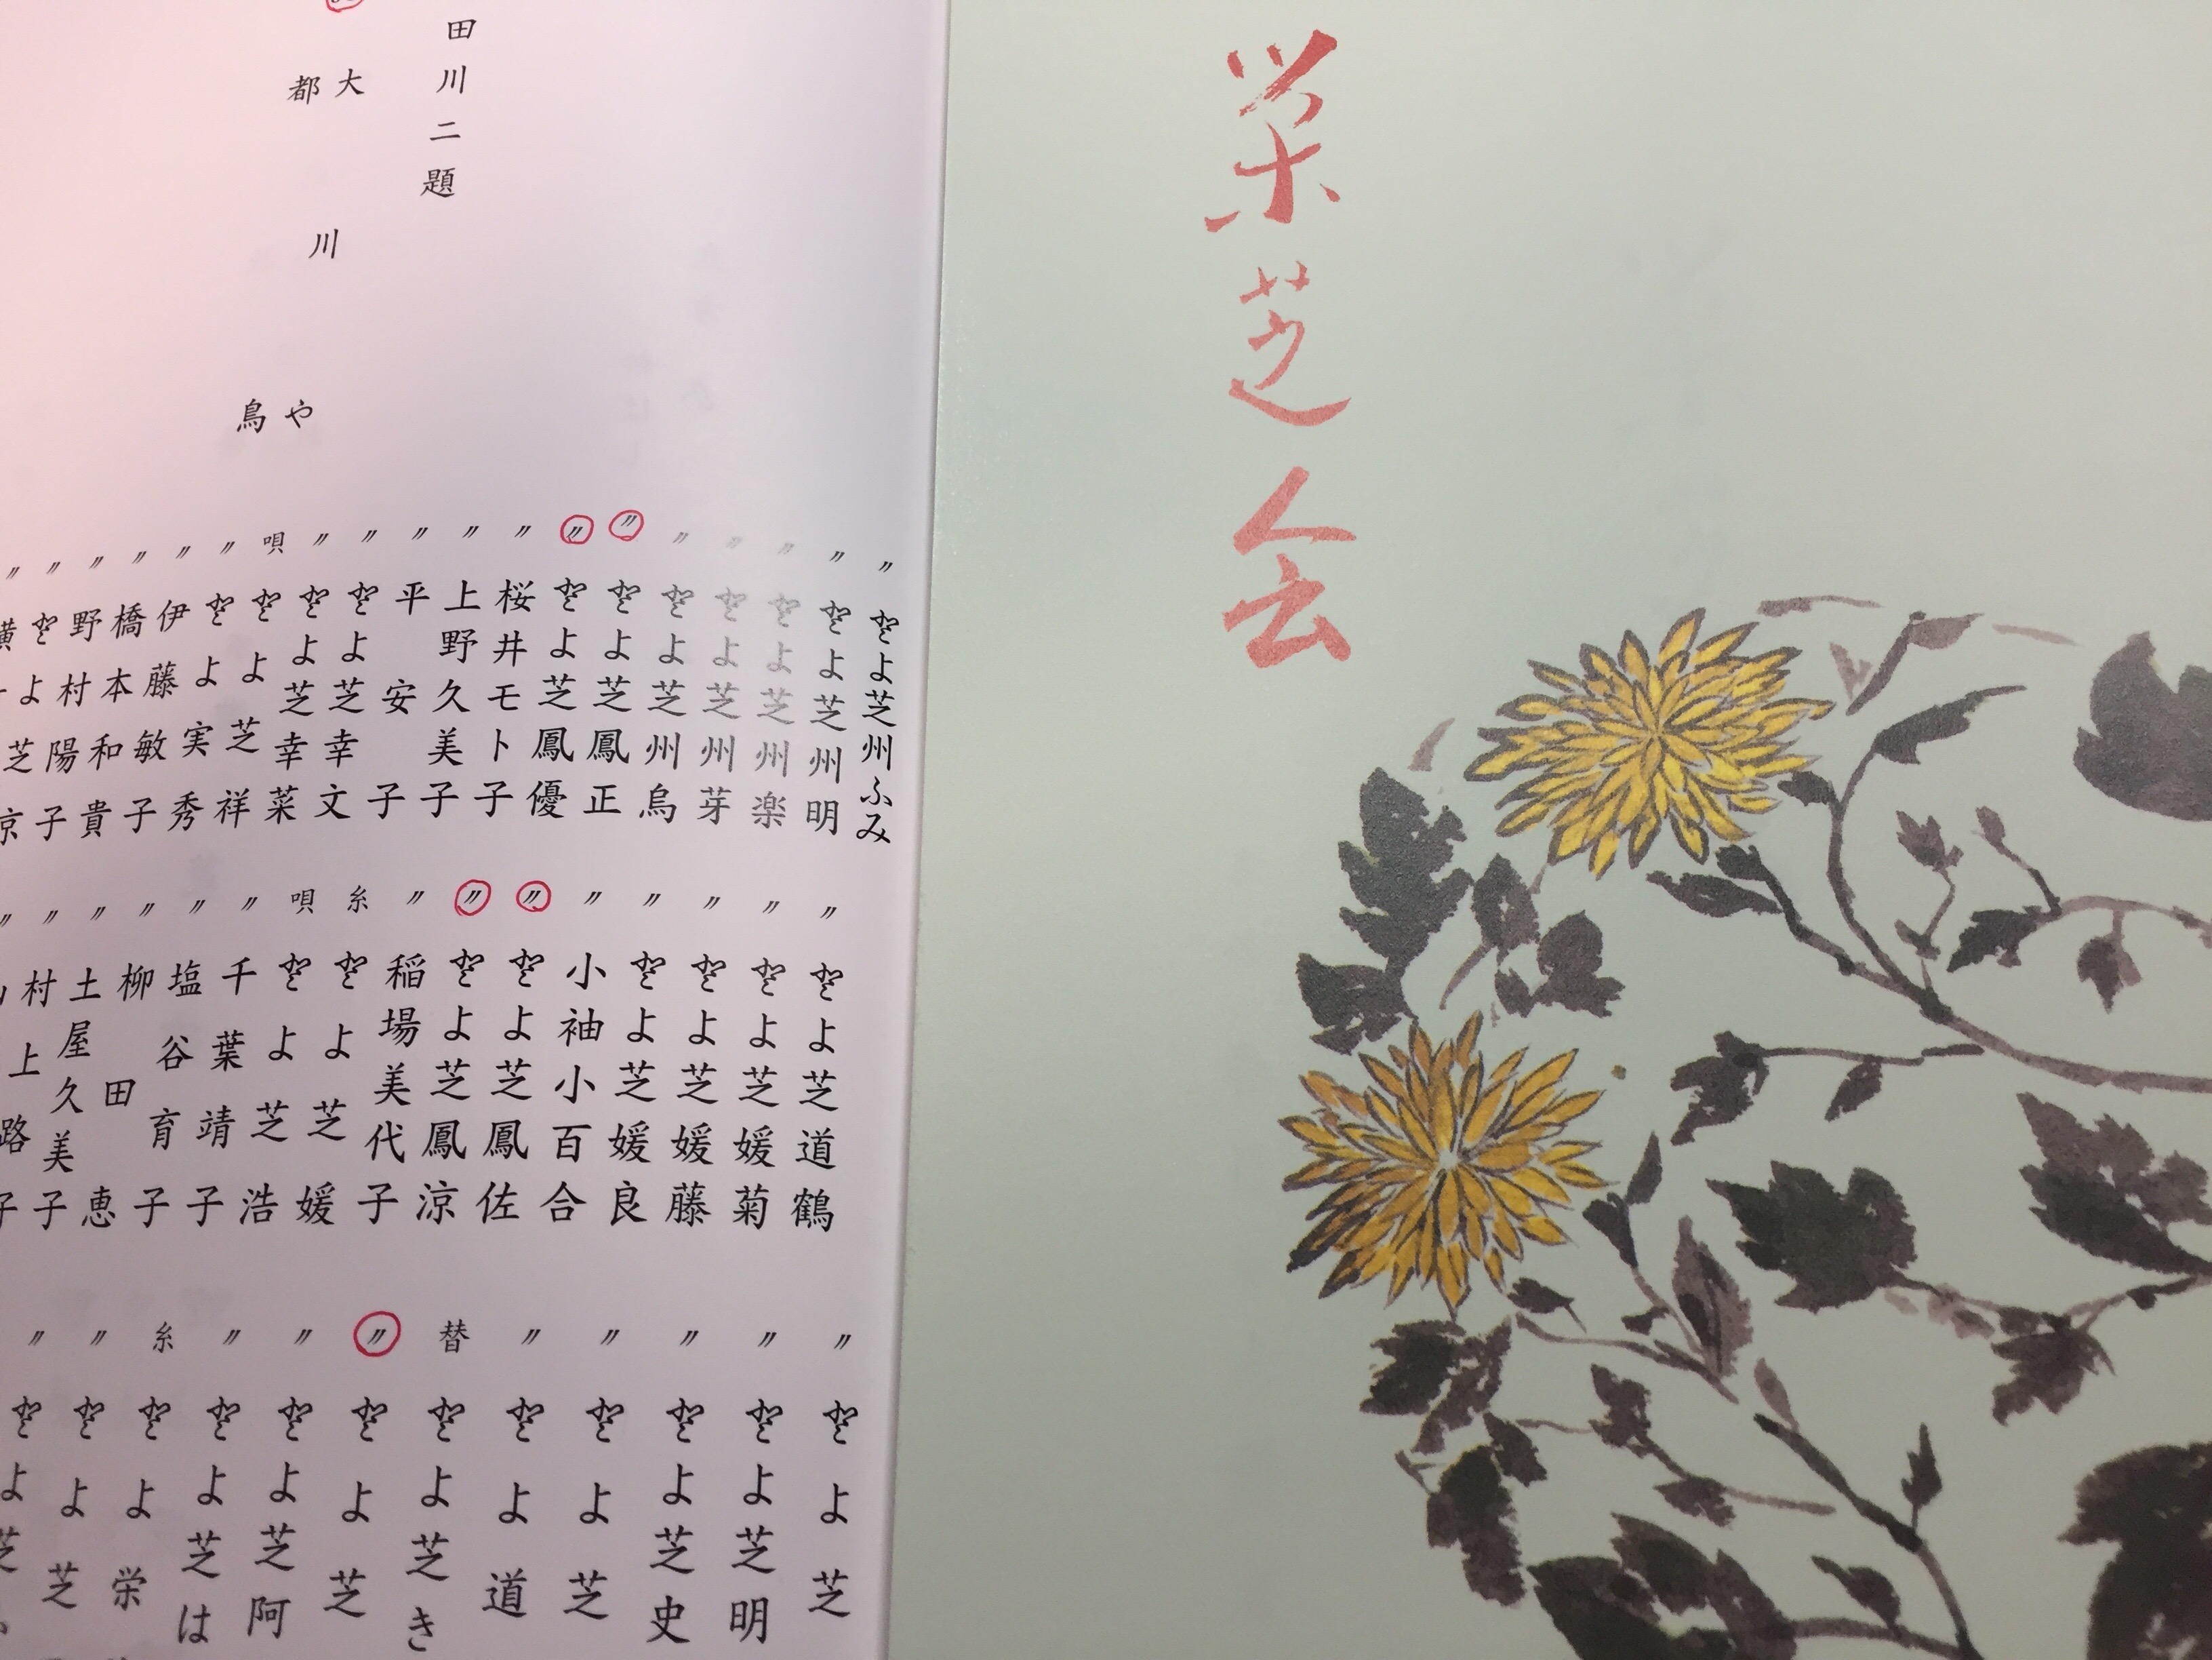 栄芝会
田川二題
大川や
都鳥
〃 とよ芝州ふみ
〃 とよ芝州明
〃 とよ芝州楽
〃 とよ芝州芽
〃 とよ芝州烏
〃 とよ芝鳳正
〃 とよ芝鳳優
〃 桜井モト子
〃 上野久美子
〃 平安子
〃 とよ芝幸文
〃 とよ芝幸菜
唄 とよ芝祥
〃 とよ実秀
〃 伊藤敏子
〃 橋本和貴
〃 野村陽子
〃 とよ芝
〃
〃 とよ芝道鶴
〃 とよ芝媛菊
〃 とよ芝媛藤
〃 とよ芝媛良
〃 小袖小百合
〃 とよ芝鳳佐
〃 とよ芝鳳涼
〃 稲場美代子
糸 とよ芝媛
唄 とよ芝浩
〃 千葉靖子
〃 塩谷育子
〃 柳田恵
〃 土屋久美子
〃 村上路子
〃
〃 とよ芝
〃 とよ芝明
〃 とよ芝史
〃 とよ芝
〃 とよ道
替 とよ芝き
〃 とよ芝
〃 とよ芝阿
〃 とよ芝は
糸 とよ栄
〃 とよ芝
〃 とよ芝